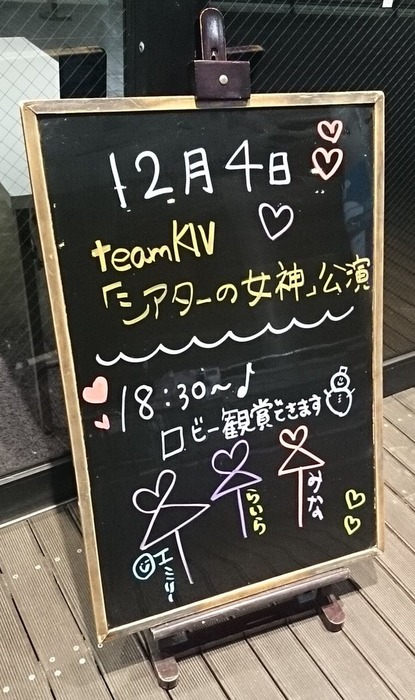 12月4日
teamKIV
「シアターの女神」公演
18:30～♪
ロビー観賞できます
みな
らいら
エミリー